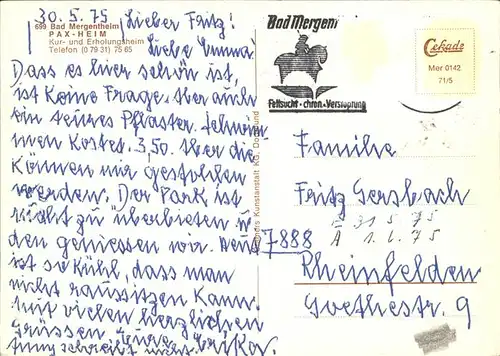 30.5.75
699 Bad Mergentheim
PAX-HEIM
Kur- und Erholungsheim
Telefon (0 79 31) 75 65
Lieber Fritz!
Liebe Emma.
Dass es hier schön ist,
ist keine Frage. Aber auch
ein teures Pflaster. Schwim
men kostet 3,50. Aber die
können mir gestohlen
werden. Der Park ist
nicht zu überbieten u.
den geniessen wir. Heut
ist so kühl, dass man
nicht raussitzen kann.
Mit vielen herzlichen
Grüssen Eure Erika.
schreibt
Kunstanstalt KG, Dortmund
Bad Mergent
Fettsucht · chron. Verstopfung
Cekade
Mer 0142
71/5
Familie
Fritz Gersbach
E 31.5.75
A 1.6.75
7888
Rheinfelden
Goethestr. 9